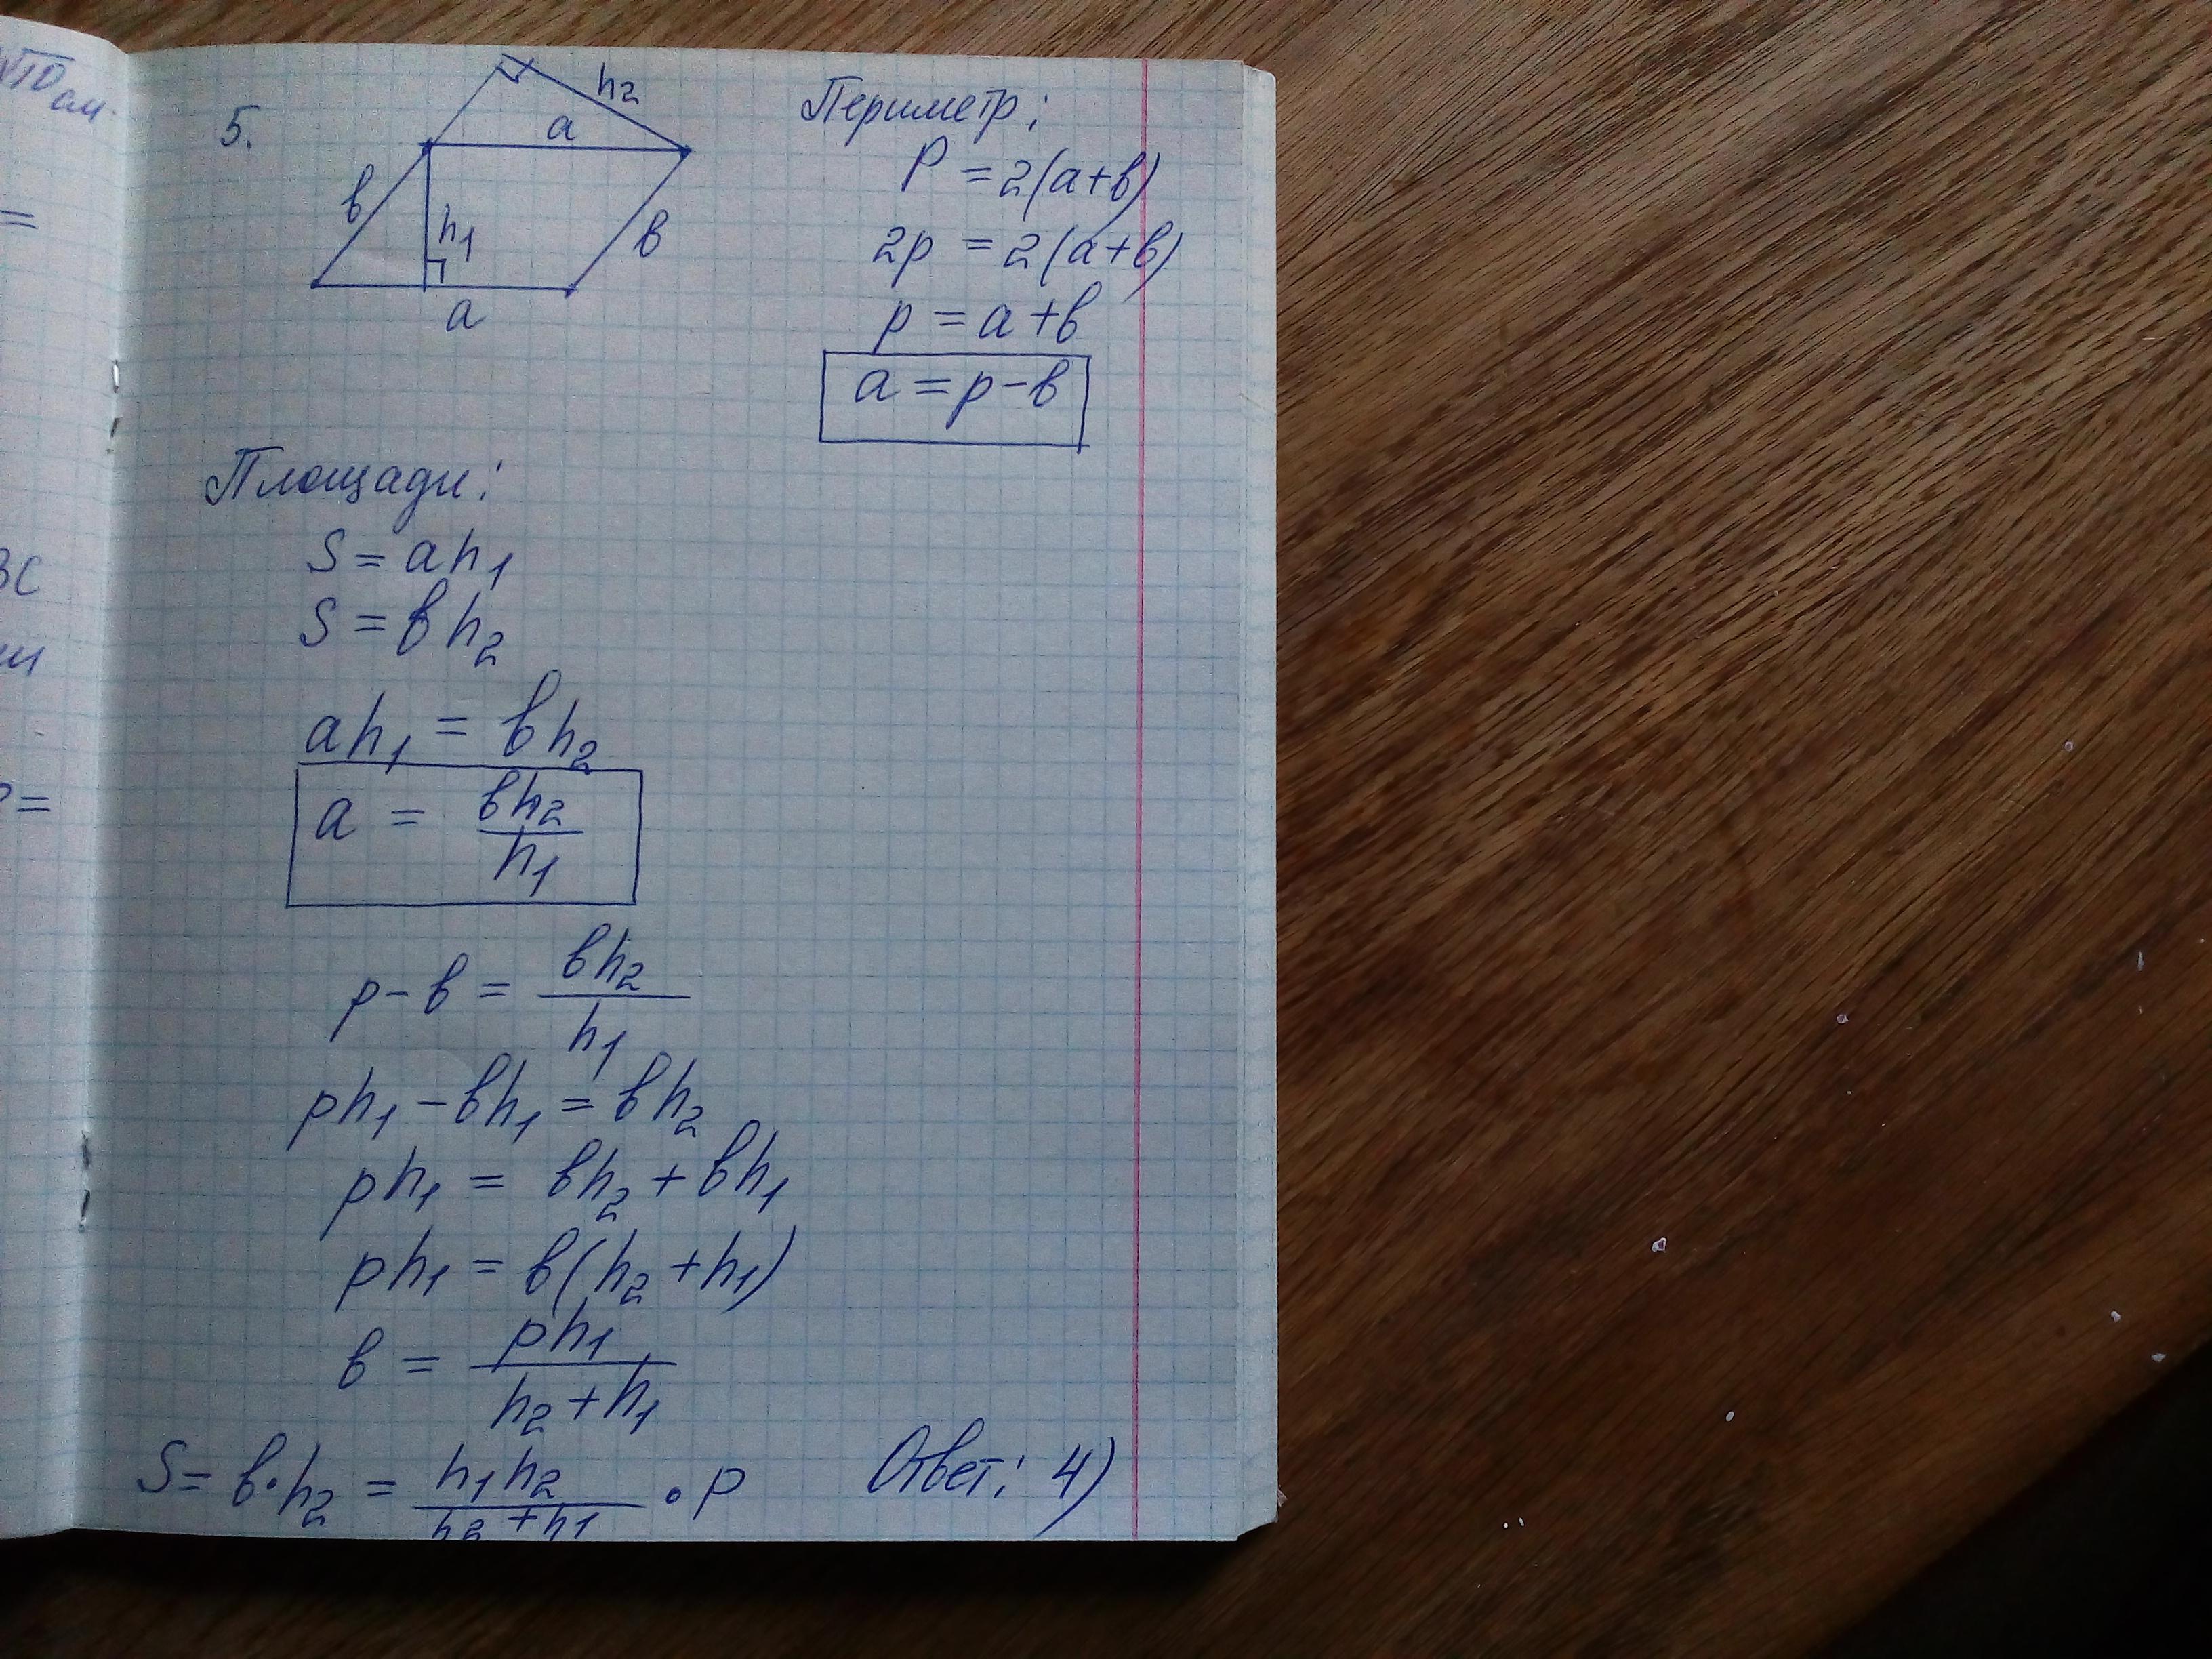 √10 см.
=
ВС
=
5.
h2
a
в
h1
в
a
Периметр:
P = 2(a+в)
2p = 2(a+в)
p = a+в
a = p-в
Площади:
S = ah1
S = вh2
ah1 = вh2
a = вh2/h1
p-в = вh2/h1
ph1 - вh1 = вh2
ph1 = вh2 + вh1
ph1 = в(h2+h1)
в = ph1/h2+h1
S = в·h2 = h1h2/h2+h1 · p
Ответ: 4)